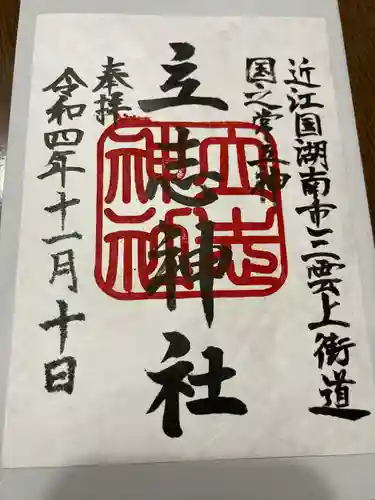 近江国湖南市三雲上街道
国之常立神
立志神社
奉拝
令和四年十一月十日
立志神社